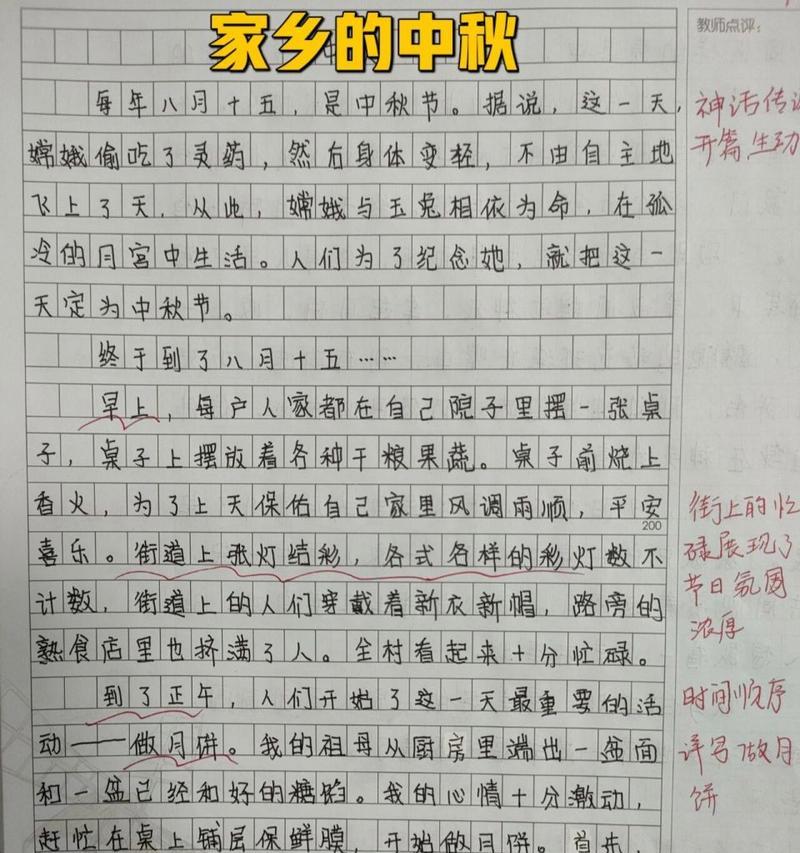 家乡的中秋
教师点评:
每年八月十五,是中秋节。据说,这一天,
嫦娥偷吃了灵药,然后身体变轻,不由自主地
飞上了天,从此,嫦娥与玉兔相依为命,在孤
冷的月宫中生活。人们为了纪念她,就把这一
天定为中秋节。
终于到了八月十五……
早上,每户人家都在自己院子里摆一张桌
子,桌子上摆放着各种干粮果蔬。桌子前烧上
香火,为了上天保佑自己家里风调雨顺,平安
200
喜乐。街道上张灯结彩,各式各样的彩灯数不
计数,街道上的人们穿戴着新衣新帽,路旁的
熟食店里也挤满了人。全村看起来十分忙碌。
到了正午,人们开始了这一天最重要的活
动——做月饼。我的祖母从厨房里端出一盆面
和一盆已经和好的糖馅。我的心情十分激动,
赶忙在桌上铺层保鲜膜,开始做月饼。首先,
神话传说
开篇生动
街上的忙
碌展现了
节日氛围
浓厚
时间顺序
详写做月
饼